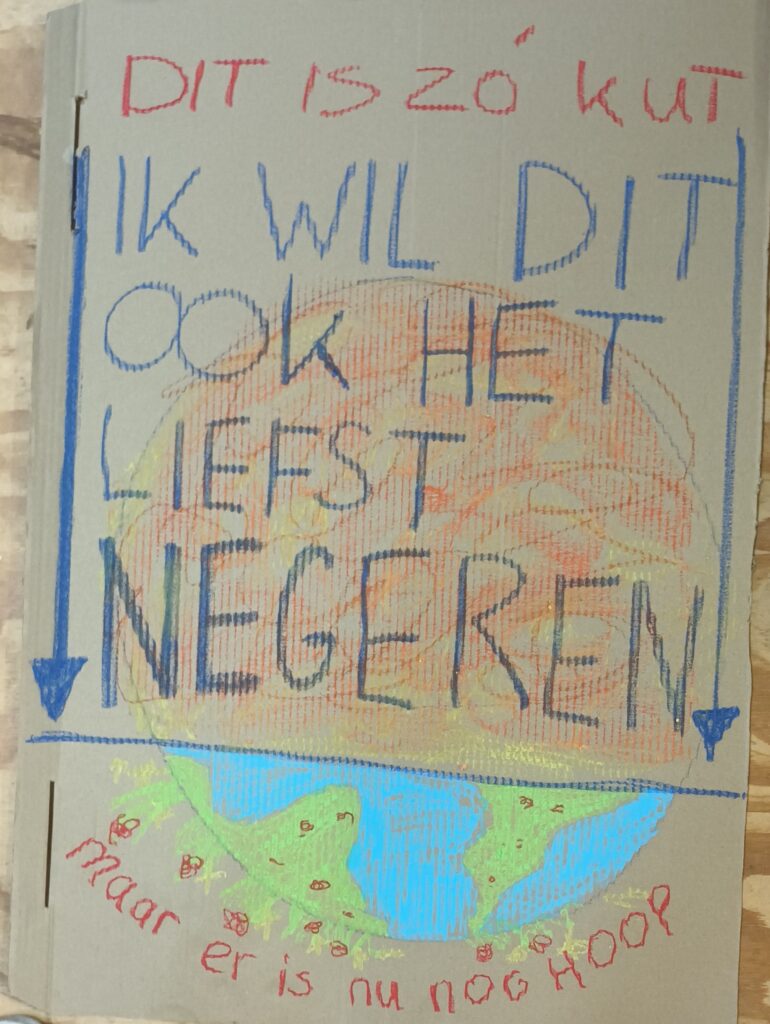 DIT IS ZÓ KUT
IK WIL DIT
OOK HET
LIEFST
NEGEREN
maar er is nu noG HOOP